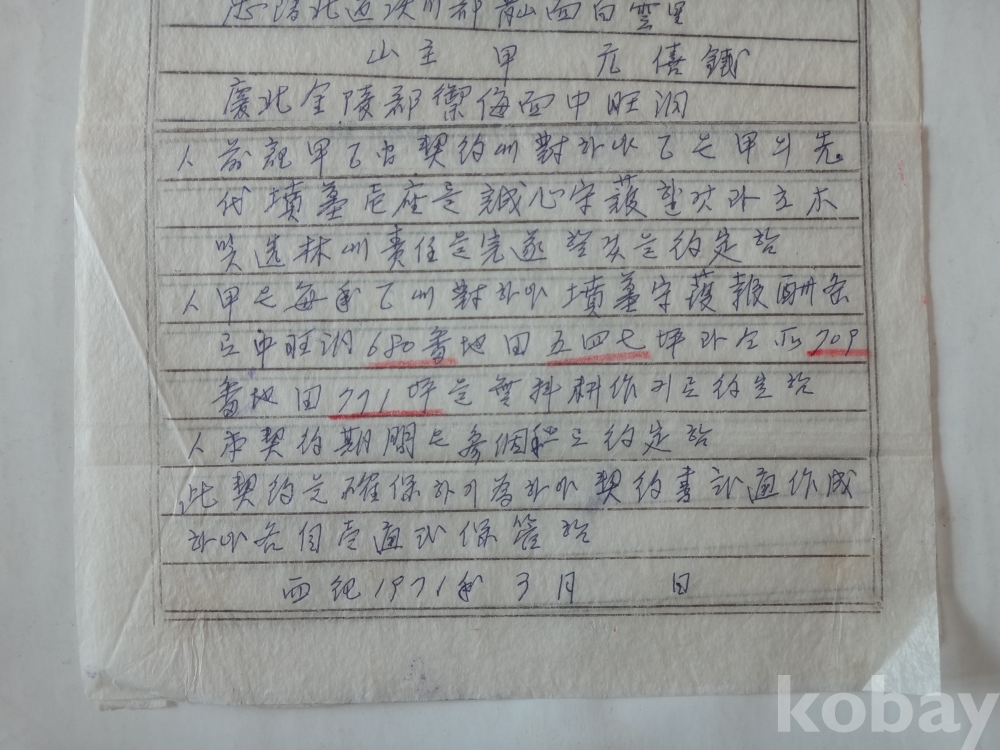 忠清北道 郡 面白雲里
山主 甲 元僖鐵
慶北金陵郡禦侮面中旺洞
人 前記甲乙 契約에 對하야 乙은 甲의 先
代墳墓壱座을 誠心守護할것과 立木
林에 責任을 完遂 約定함
人 甲은 每年 乙에 對하야 墳墓守護報酬条
로 中旺洞 680番地田 五四七坪과 仝所 709
番地田 771坪을 無料耕作키로 約定함
人 本契約期間은 로 約定함
此契約을 確保하기 爲하야 契約書 通作成
하야 各自壱通式保管함
西紀1971年 3月 日
kobay